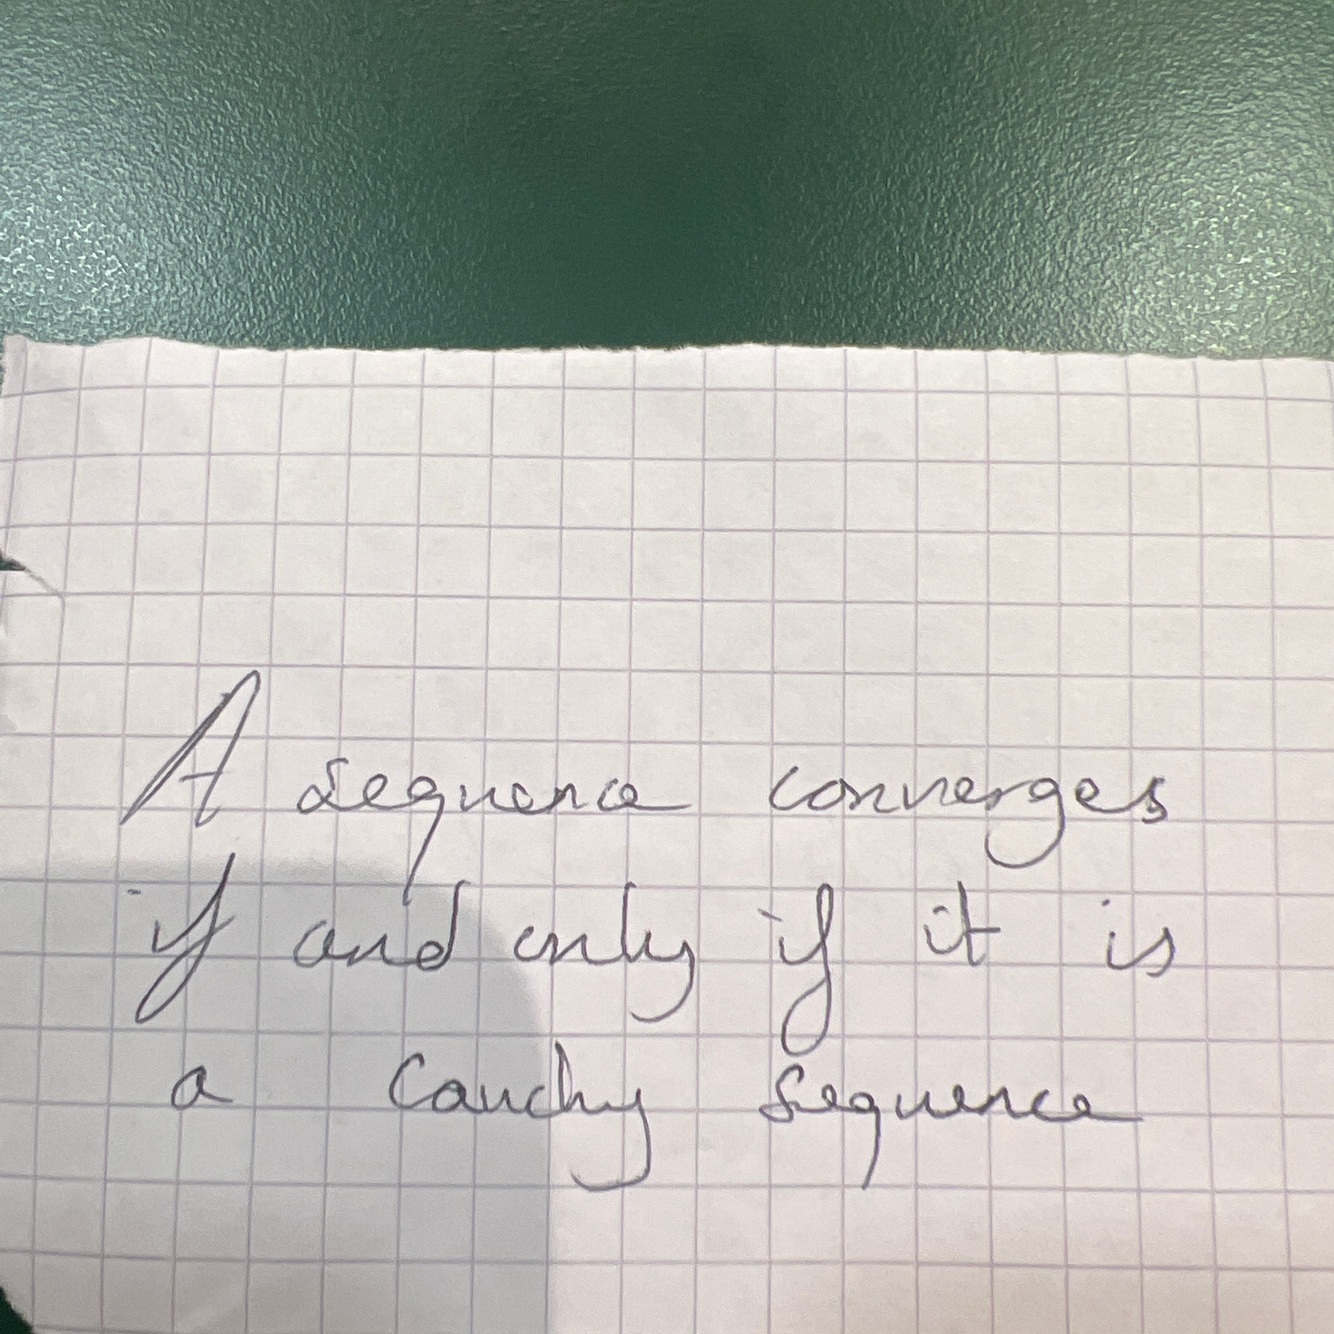 A sequence converges
if and only if it is
a Cauchy sequence